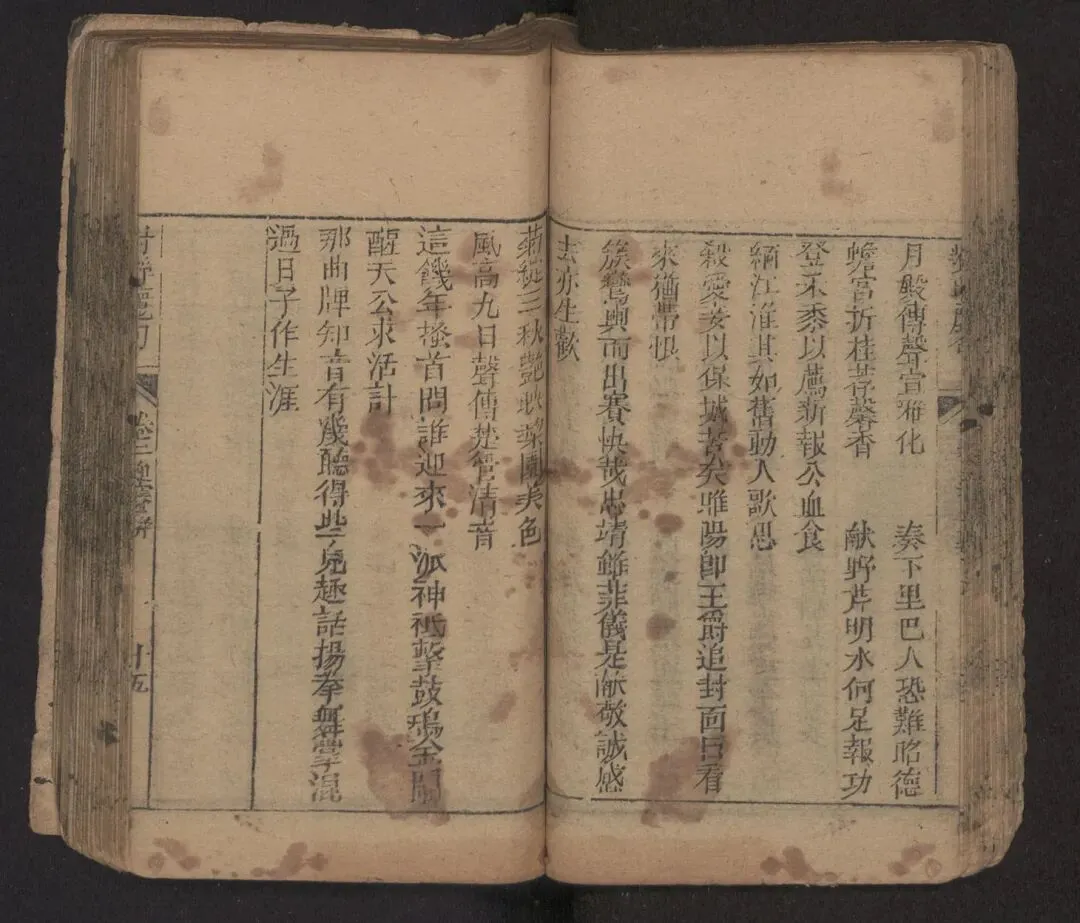 月殿傳聲宣雅化 奏下里巴人恐難昭德
蟾宮折桂荐馨香 献野芹明水何足報功
登禾黍以薦新報公血食
緬江淮其如舊動人歌思
殺愛妾以保城苦矣睢陽即王爵追封面目看
來猶帶恨
簇鸞輿而出賽快哉忠靖雖菲儀是献敬誠感
去亦生歡
菊綻三秋艷映梨園美色
風高九日聲傳楚管清音
這饑年搔首問誰迎來一派神祇擊鼓鳴金鬧
醒天公求活計
那曲牌知音有幾聽得些兒趣話揚拳舞掌混
過日子作生涯
卷二
十五